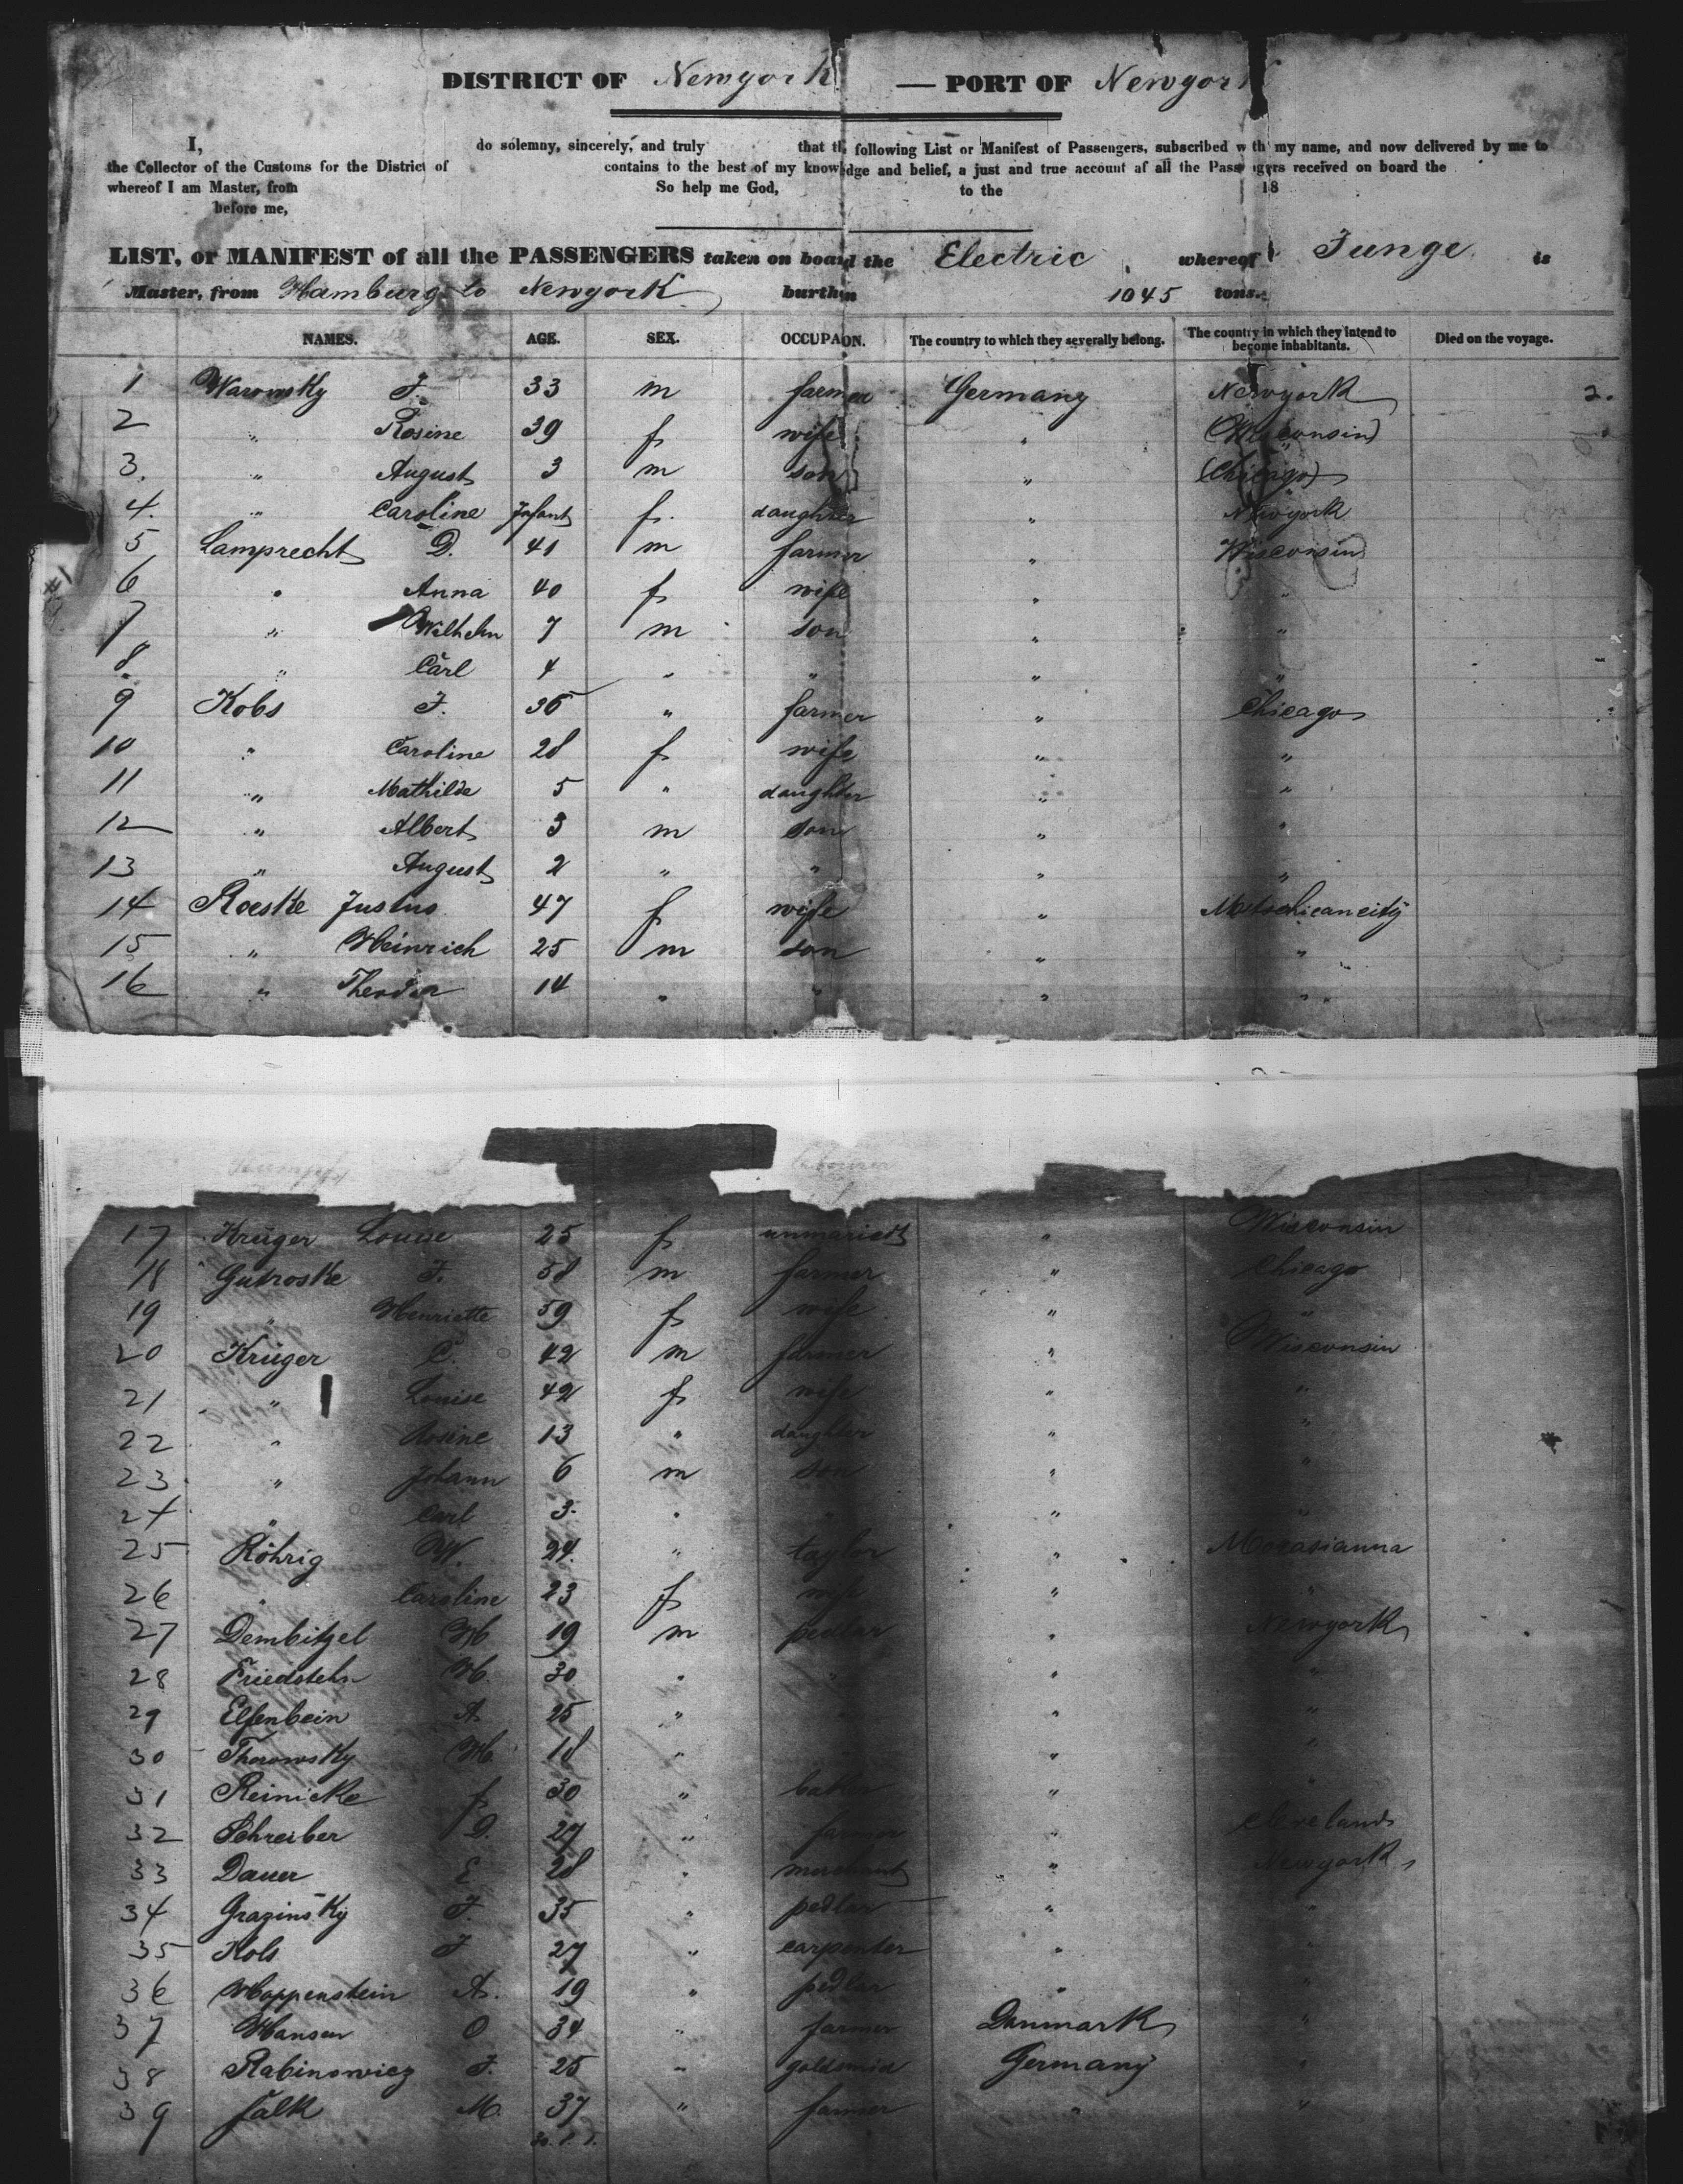 DISTRICT OF Newyork — PORT OF Newyork
I, do solemny, sincerely, and truly that th following List or Manifest of Passengers, subscribed with my name, and now delivered by me to
the Collector of the Customs for the District of contains to the best of my knowledge and belief, a just and true account af all the Passengers received on board the
whereof I am Master, from So help me God, to the 18
before me,
LIST, or MANIFEST of all the PASSENGERS taken on board the Electric whereof Junge is
Master, from Hamburg to Newyork burthen 1045 tons.
NAMES. AGE. SEX. OCCUPAON. The country to which they severally belong. The country in which they intend to become inhabitants. Died on the voyage.
1 Warowsky F. 33 m farmer Germany Newyork 2.
2 " Rosine 39 f wife " (Wisconsin)
3. " August 3 m son " (Chicago)
4. " Caroline Infant f. daughter " Newyork
5 Lamprecht D. 41 m farmer " Wisconsin
6 " Anna 40 f wife " "
7 " Wilhelm 7 m son " "
8. " Carl 4 " " " "
9 Kobs F. 36 " farmer " Chicago
10 " Caroline 28 f wife " "
11 " Mathilde 5 " daughter " "
12 " Albert 3 m son " "
13 " August 2 " " " "
14 Roeske Justus 47 f wife " Metschicancity
15 " Heinrich 25 m son " "
16 " Theodor 14 " " " "
17 Krüger Louise 25 f unmariedt " Wisconsin
18 Gutroske F. 58 m farmer " Chicago
19 " Henriette 59 f wife " "
20 Krüger C. 42 m farmer " Wisconsin
21 " Louise 42 f wife " "
22 " Rosine 13 " daughter " "
23 " Johann 6 m son " "
24 " Carl 3. " " " "
25 Röhrig W. 24. " taylor "
26 " Caroline 23 f wife " "
27 Dembitzel 19 m pedlar " Newyork
28 Friedstehn H. 30 " " " "
29 Elfenbein A. 25 " " "
30 Thorowsky 18 " " "
31 Reinicke f 30 " baker " "
32 Schreiber D. 27 " farmer " Cleveland
33 Dauer E 28 " merchant " Newyork
34 Grazinsky F. 35 " pedlar " "
35 Kols F 27 " carpenter " "
36 Hoppenstein A. 19 " pedlar " "
37 Hansen O 34 " farmer Danmark "
38 Rabinowicz F. 25 " goldsmid Germany "
39 Falk M. 37 " farmer " "